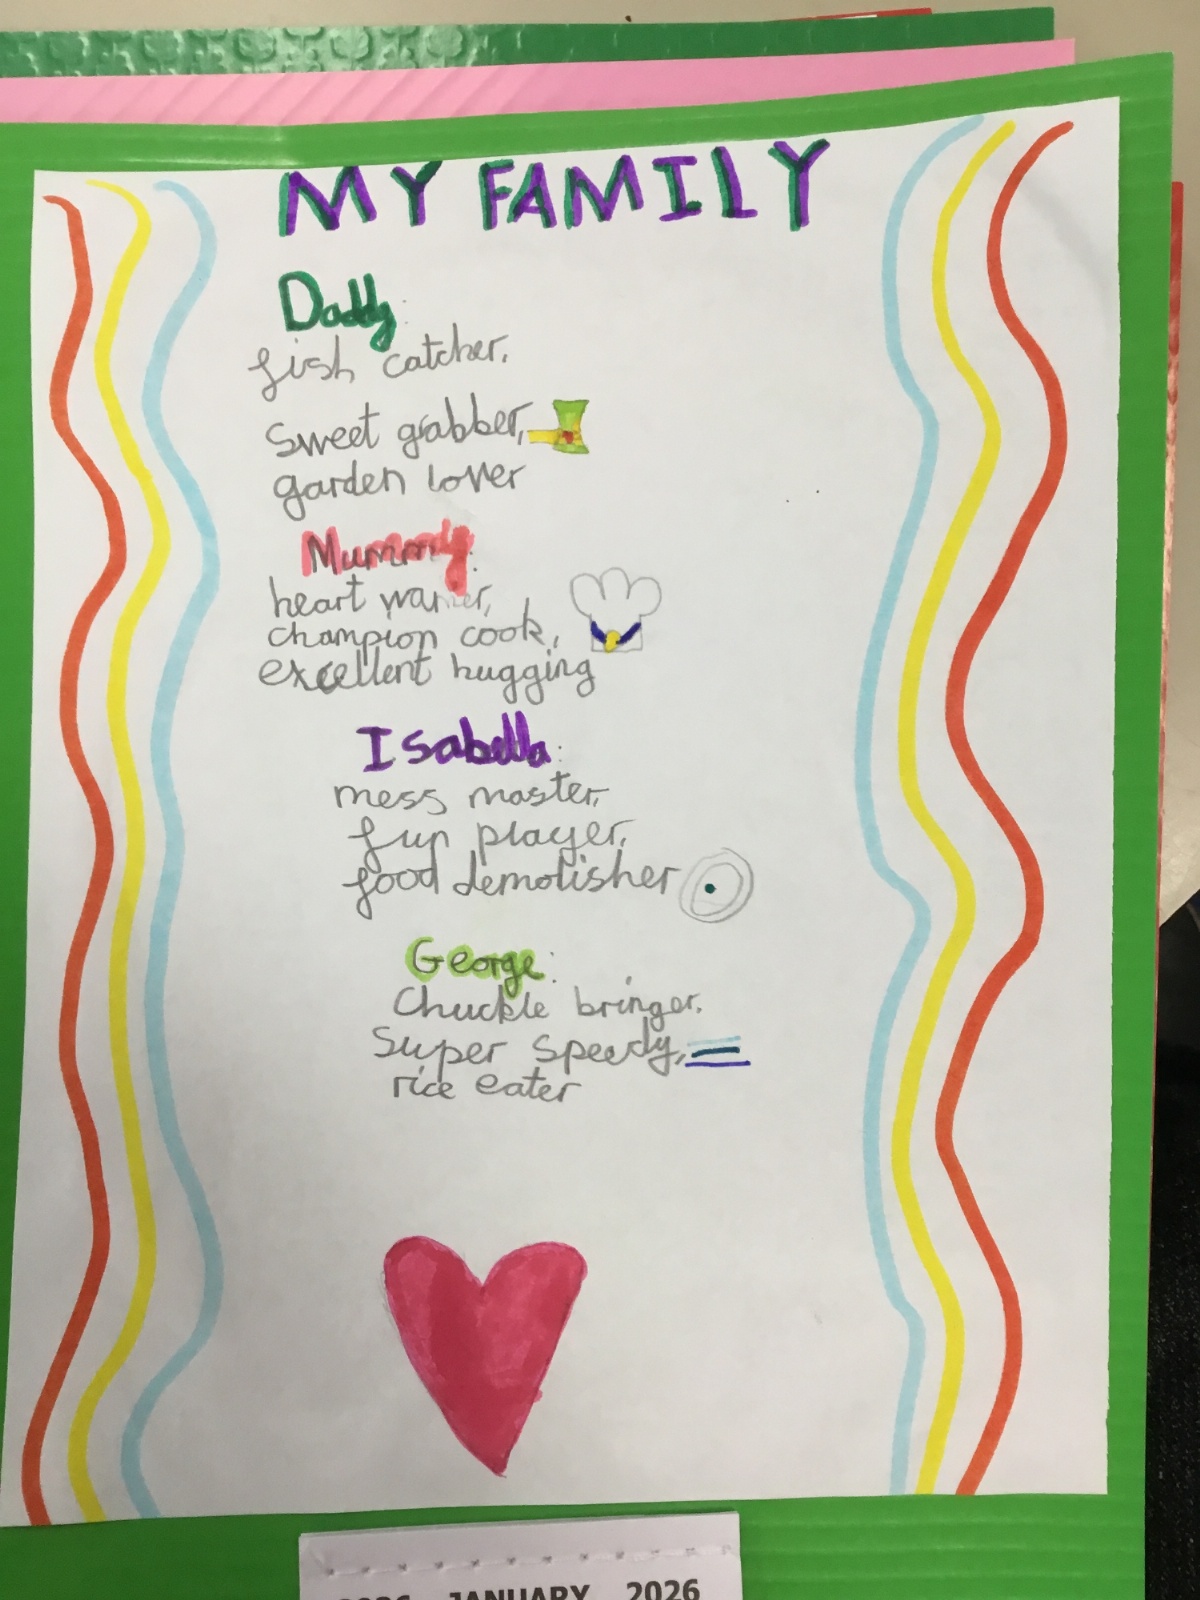 MY FAMILY
Daddy:
fish catcher,
Sweet grabber,
garden lover
Mummy:
heart warmer,
champion cook,
excellent hugging
Isabella:
mess master,
fun player,
food demolisher
George:
Chuckle bringer.
Super Speedy,
rice eater
2026 JANUARY 2026